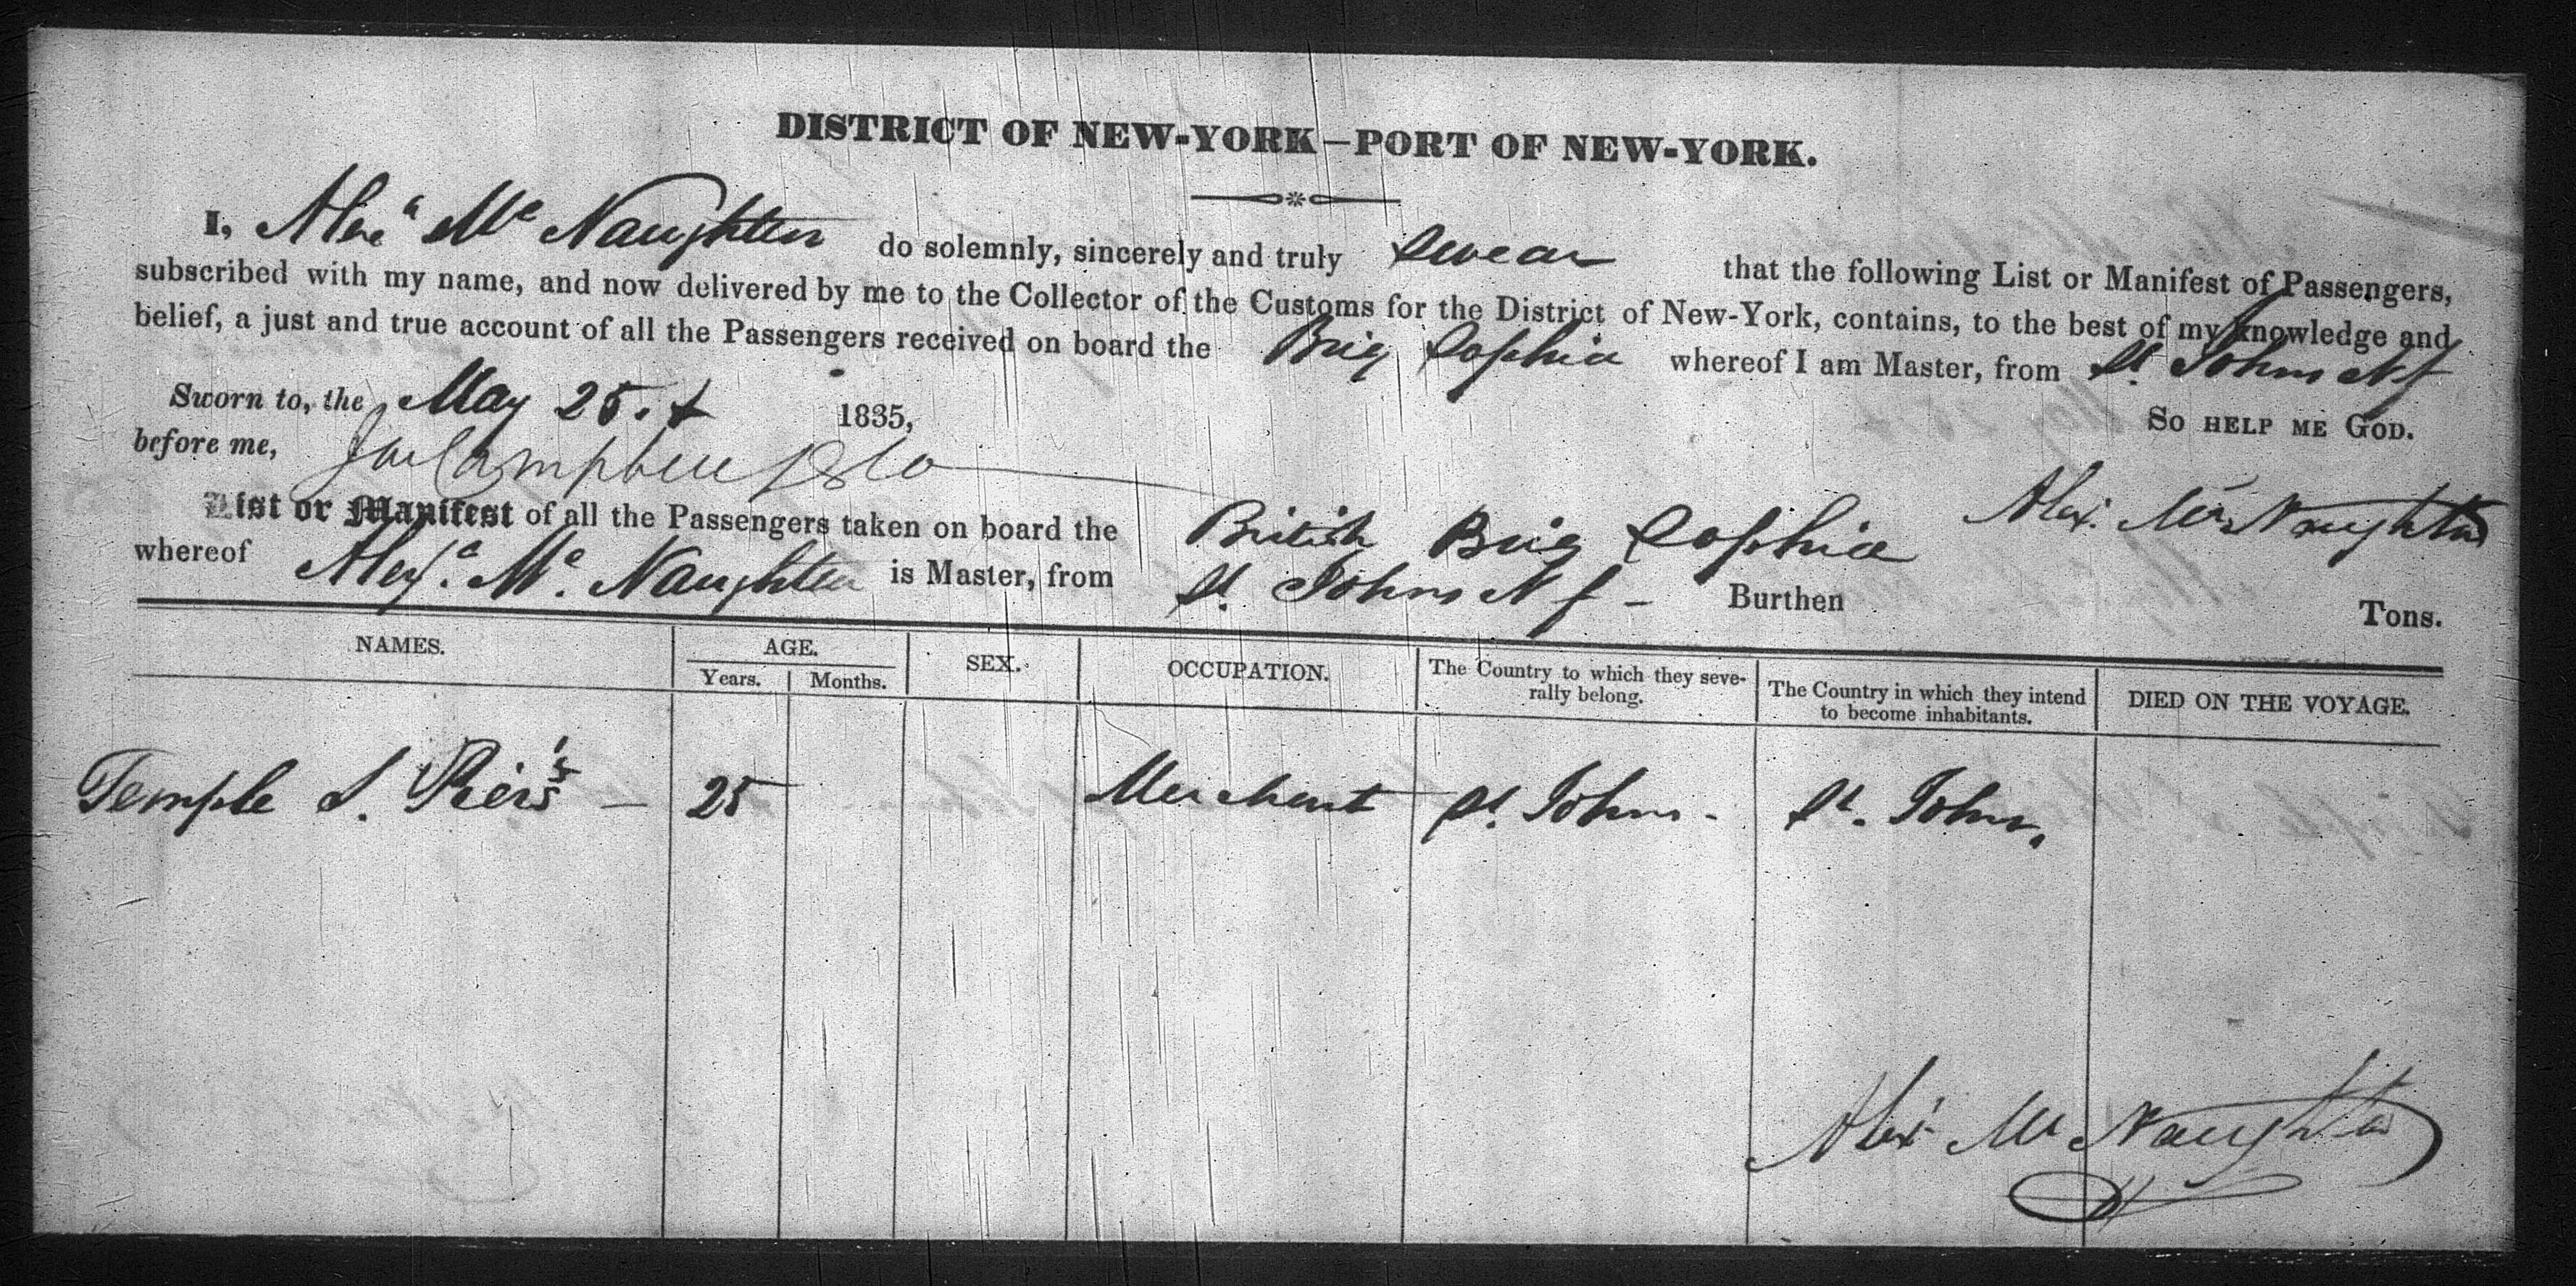 DISTRICT OF NEW-YORK—PORT OF NEW-YORK.
I, Alexa Mc Naughten do solemnly, sincerely and truly Swear that the following List or Manifest of Passengers,
subscribed with my name, and now delivered by me to the Collector of the Customs for the District of New-York, contains, to the best of my knowledge and
belief, a just and true account of all the Passengers received on board the Brig Sophia whereof I am Master, from St Johns Nf
Sworn to, the May 25. 1835, SO HELP ME GOD.
before me, Campbell
Alex. McNaughten
List or Manifest of all the Passengers taken on board the British Brig Sophia
whereof Alexa. Mc. Naughten is Master, from St. Johns Nf - Burthen Tons.
NAMES. AGE. SEX. OCCUPATION. The Country to which they seve- The Country in which they intend DIED ON THE VOYAGE.
Years. Months. rally belong. to become inhabitants.
Temple S. Piers — 25 Merchant St. Johns - St. Johns.
Alex McNaughten